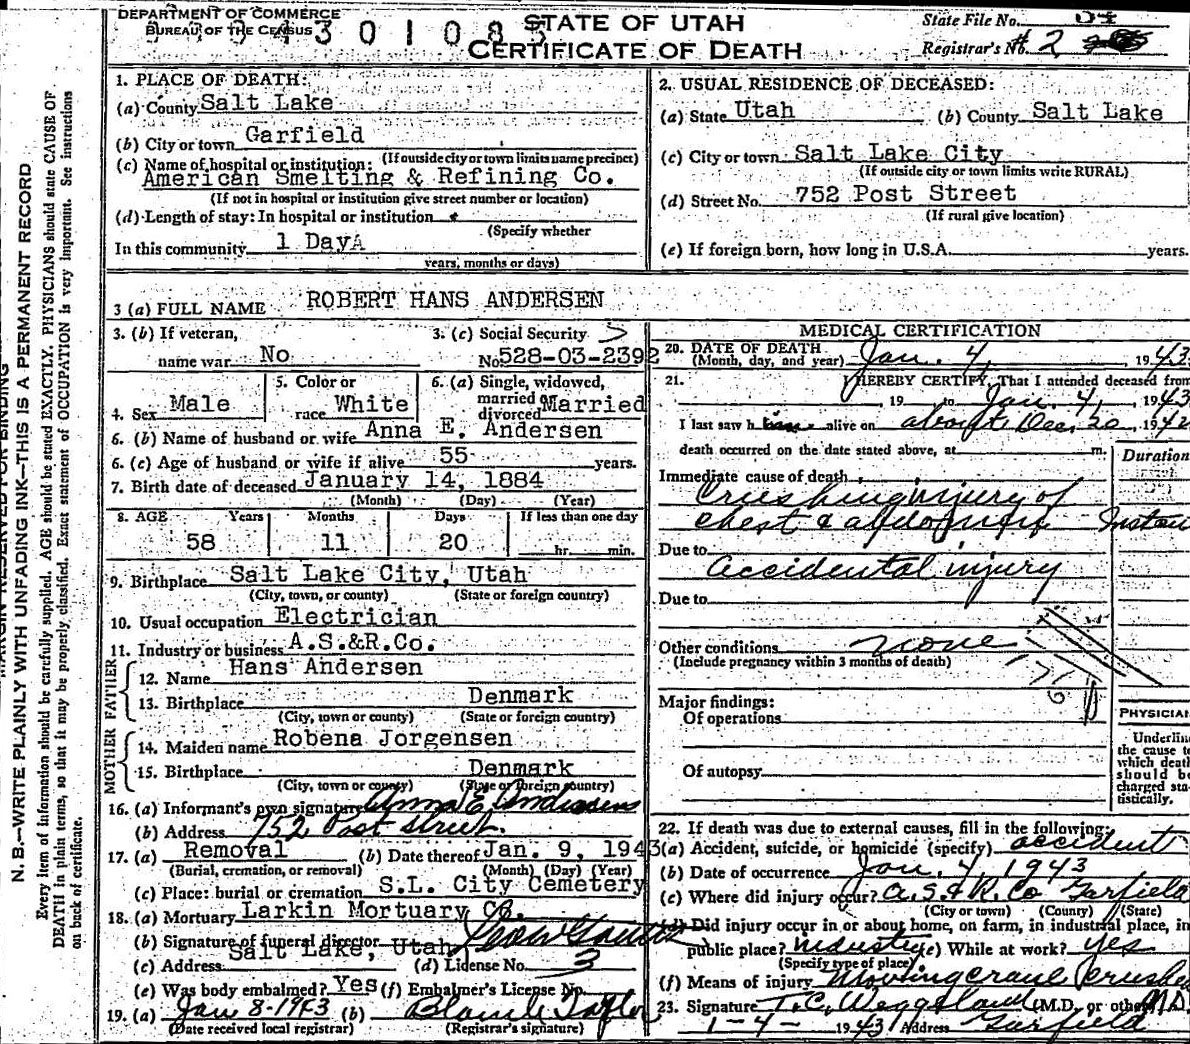 DEPARTMENT OF COMMERCE
BUREAU OF THE CENSUS
STATE OF UTAH
CERTIFICATE OF DEATH
State File No. 54
Registrar's No. # 2
1. PLACE OF DEATH:
(a) County Salt Lake
(b) City or town Garfield
(If outside city or town limits name precinct)
(c) Name of hospital or institution:
American Smelting & Refining Co.
(If not in hospital or institution give street number or location)
(d) Length of stay: In hospital or institution
(Specify whether
In this community 1 Day
years, months or days)
2. USUAL RESIDENCE OF DECEASED:
(a) State Utah (b) County Salt Lake
(c) City or town Salt Lake City
(If outside city or town limits write RURAL)
(d) Street No. 752 Post Street
(If rural give location)
(e) If foreign born, how long in U.S.A. years.
3 (a) FULL NAME ROBERT HANS ANDERSEN
3. (b) If veteran,
name war No
3. (c) Social Security
No. 528-03-2392
4. Sex Male
5. Color or
race White
6. (a) Single, widowed,
married or
divorced Married
6. (b) Name of husband or wife Anna E. Andersen
6. (c) Age of husband or wife if alive 55 years.
7. Birth date of deceased January 14, 1884
(Month) (Day) (Year)
8. AGE Years Months Days If less than one day
58 11 20 hr. min.
9. Birthplace Salt Lake City, Utah
(City, town, or county) (State or foreign country)
10. Usual occupation Electrician
11. Industry or business A.S.&R.Co.
FATHER
12. Name Hans Andersen
13. Birthplace Denmark
(City, town or county) (State or foreign country)
MOTHER
14. Maiden name Robena Jorgensen
15. Birthplace Denmark
(City, town or county) (State or foreign country)
16. (a) Informant's own signature Anna E. Andersen
(b) Address 752 Post Street.
17. (a) Removal (b) Date thereof Jan. 9, 1943
(Burial, cremation, or removal) (Month) (Day) (Year)
(c) Place: burial or cremation S.L. City Cemetery
18. (a) Mortuary Larkin Mortuary Co.
(b) Signature of funeral director
(c) Address Salt Lake, Utah (d) License No. 3
(e) Was body embalmed? Yes (f) Embalmer's License No.
19. (a) Jan 8-1943 (b) Taylor
(Date received local registrar) (Registrar's signature)
MEDICAL CERTIFICATION
20. DATE OF DEATH
(Month, day, and year) Jan. 4, 1943
21. I HEREBY CERTIFY, That I attended deceased from
, 19 to Jan. 4, 1943
I last saw h im alive on about Dec. 20, 1942
death occurred on the date stated above, at m.
Duration
Immediate cause of death
Crushing injury of
chest & abdomen Instan
Due to
accidental injury
Due to
Other conditions none
(Include pregnancy within 3 months of death)
Major findings:
Of operations
Of autopsy
PHYSICIAN
Underline
the cause to
which death
should be
charged sta-
tistically.
22. If death was due to external causes, fill in the following:
(a) Accident, suicide, or homicide (specify) accident
(b) Date of occurrence Jan. 4, 1943
(c) Where did injury occur? A.S.&R. Co Garfield
(City or town) (County) (State)
(d) Did injury occur in or about home, on farm, in industrial place, in
public place? industry (e) While at work? yes
(Specify type of place)
(f) Means of injury Moving crane crushed
23. Signature T.C. Weggeland (M.D. or other) M.D.
1-4- 1943 Address Garfield
N. B.—WRITE PLAINLY WITH UNFADING INK—THIS IS A PERMANENT RECORD
Every item of information should be carefully supplied. AGE should be stated EXACTLY. PHYSICIANS should state CAUSE OF
DEATH in plain terms, so that it may be properly classified. Exact statement of OCCUPATION is very important. See instructions
on back of certificate.